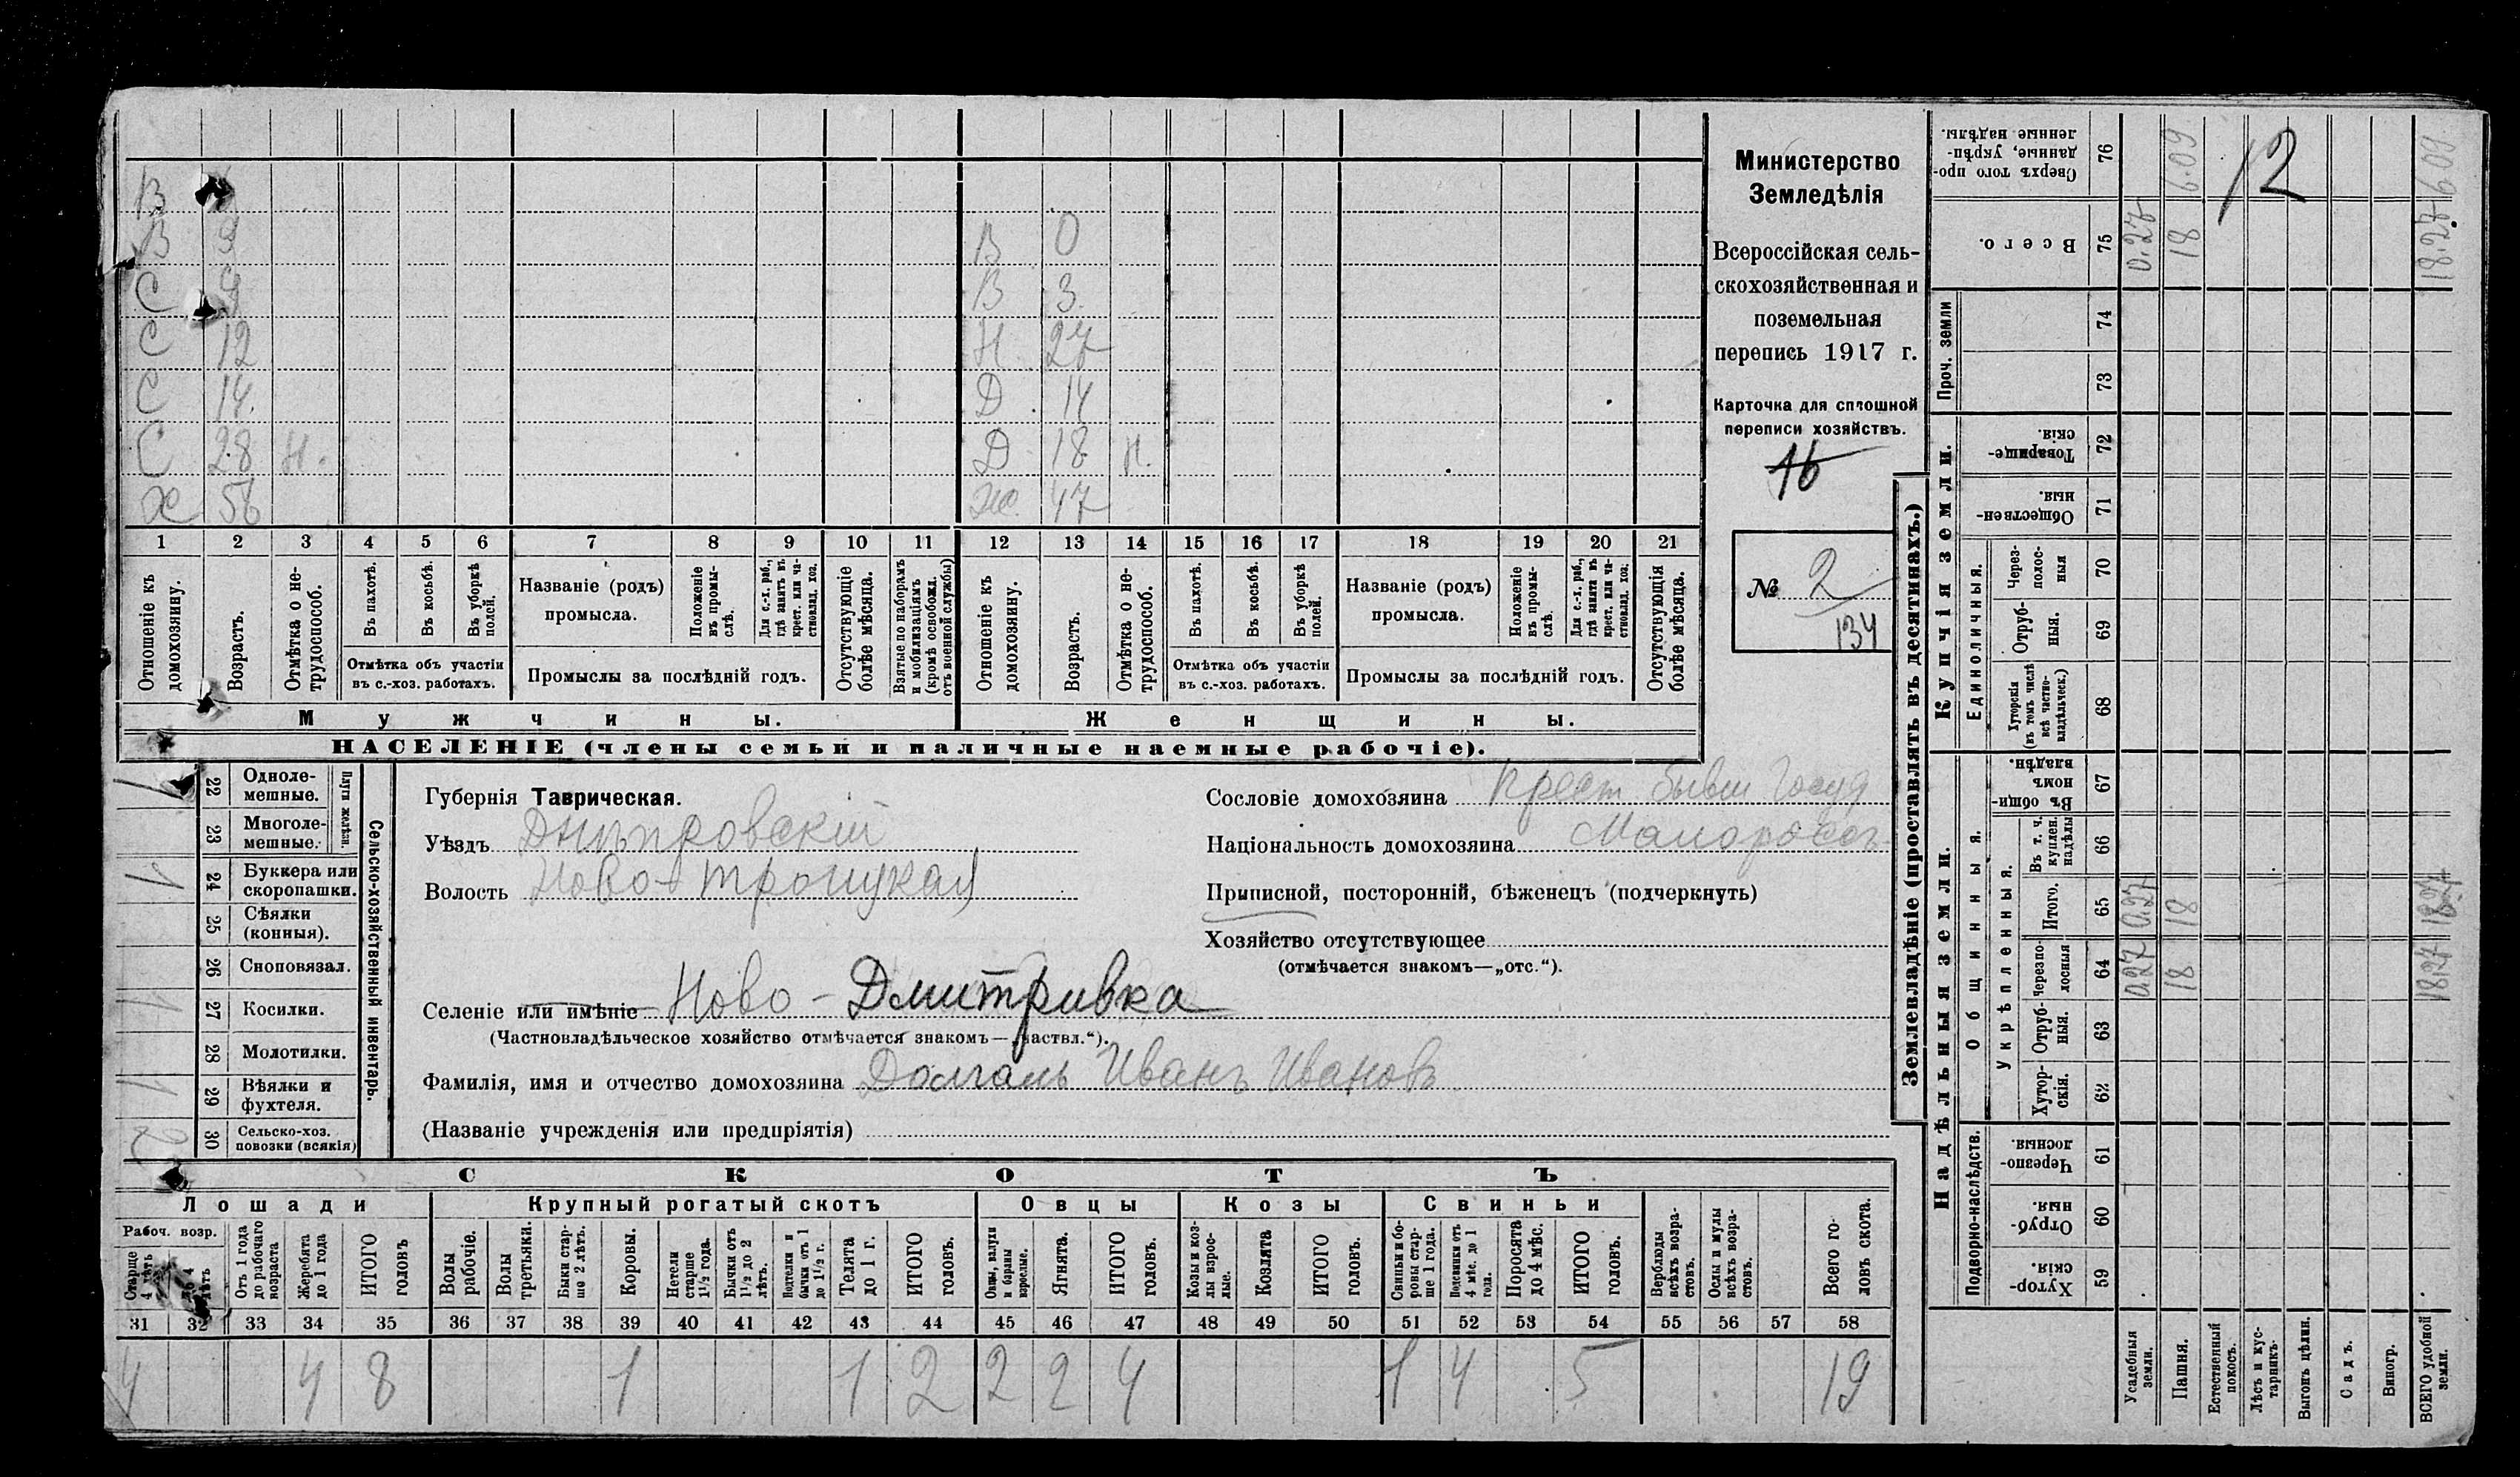 В
В 9
С 9
С 12
С 14.
С 28 Н.
Х 56
В 0
В 3.
Н 27
Д. 14
Д. 18 Н.
Ж. 47
1 2 3 4 5 6 7 8 9 10 11 12 13 14 15 16 17 18 19 20 21
Отношеніе къ домохозяину.
Возрастъ.
Отмѣтка о нетрудоспособ.
Въ пахотѣ.
Въ косьбѣ.
Въ уборкѣ полей.
Отмѣтка объ участіи
въ с.-хоз. работахъ.
Названіе (родъ)
промысла.
Положеніе въ промыслѣ.
Для с.-х. раб., гдѣ занятъ въ крест. или частновлад. хоз.
Промыслы за послѣдній годъ.
Отсутствующіе болѣе мѣсяца.
Взятые по наборамъ и мобилизаціямъ (кромѣ освобожд. отъ военной службы)
Отношеніе къ домохозяину.
Возрастъ.
Отмѣтка о нетрудоспособ.
Въ пахотѣ.
Въ косьбѣ.
Въ уборкѣ полей.
Отмѣтка объ участіи
въ с.-хоз. работахъ.
Названіе (родъ)
промысла.
Положеніе въ промыслѣ.
Для с.-х. раб., гдѣ занята въ крест. или частновлад. хоз.
Промыслы за послѣдній годъ.
Отсутствующія болѣе мѣсяца.
Мужчины.
Женщины.
НАСЕЛЕНІЕ (члены семьи и наличные наемные рабочіе).
Министерство
Земледѣлія
Всероссійская сель-
скохозяйственная и
поземельная
перепись 1917 г.
Карточка для сплошной
переписи хозяйствъ.
16
№ 2
134
Сельско-хозяйственный инвентарь.
Плуги желѣзн.
22 Одноле-
мешные.
1
23 Многоле-
мешные.
24 Буккера или
скоропашки.
1
25 Сѣялки
(конныя).
26 Сноповязал.
27 Косилки.
1
28 Молотилки.
29 Вѣялки и
фухтеля.
1
30 Сельско-хоз.
повозки (всякія)
2
Губернія Таврическая.
Уѣздъ Днѣпровскій
Волость Ново-Троицкая
Сословіе домохозяина Крест. бывш Госуд
Національность домохозяина Малороссъ
Приписной, посторонній, бѣженецъ (подчеркнуть)
Хозяйство отсутствующее
(отмѣчается знакомъ—„отс.“).
Селеніе или имѣніе Ново-Дмитривка
(Частновладѣльческое хозяйство отмѣчается знакомъ—„частвл.“).
Фамилія, имя и отчество домохозяина Долгаль Иванъ Ивановъ
(Названіе учрежденія или предпріятія)
СКОТЪ
Лошади
Крупный рогатый скотъ
Овцы
Козы
Свиньи
Рабоч. возр.
Старше 4 лѣтъ
до 4 лѣтъ
Отъ 1 года до рабочаго возраста
Жеребята до 1 года
ИТОГО головъ
Волы рабочіе.
Волы третьяки.
Быки старше 2 лѣтъ.
Коровы.
Нетели старше 1½ года.
Бычки отъ 1½ до 2 лѣтъ.
Подтелки и бычки отъ 1 до 1½ г.
Телята до 1 г.
ИТОГО головъ.
Овцы, валухи и бараны взрослые.
Ягнята.
ИТОГО головъ.
Козы и козлы взрослые.
Козлята
ИТОГО головъ.
Свиньи и боровы старше 1 года.
Подсвинки отъ 4 мѣс. до 1 года.
Поросята до 4 мѣс.
ИТОГО головъ.
Верблюды всѣхъ возрастовъ.
Ослы и мулы всѣхъ возрастовъ.
Всего головъ скота.
31 32 33 34 35 36 37 38 39 40 41 42 43 44 45 46 47 48 49 50 51 52 53 54 55 56 57 58
4 4 8 1 1 2 2 2 4 1 4 5 19
Землевладѣніе (проставлять въ десятинахъ.)
Надѣльныя земли.
Купчія земли.
Проч. земли
Подворно-наслѣдств.
Общинныя.
Укрѣпленныя.
Единоличныя.
59 Хуторскія.
60 Отрубныя.
61 Черезполосныя.
62 Хуторскія.
63 Отрубныя.
64 Черезполосныя
65 Итого.
66 Въ т. ч. куплен. надѣлы
67 Въ общинномъ владѣн.
68 Хуторскія (въ томъ числѣ всѣ частновладѣльческ.)
69 Отрубныя.
70 Черезполосныя
71 Общественныя.
72 Товарищескія.
73
74
75 Всего.
76 Сверхъ того проданные, укрѣпленные надѣлы.
Усадебныя земли. 0.27 0.27 0.27
Пашня. 18 18 18 6.09
Естественный покосъ.
Лѣсъ и кустарникъ.
Выгонъ цѣлин.
Садъ.
Виногр.
ВСЕГО удобной земли. 18.27 18.27 18.27 6.09
12